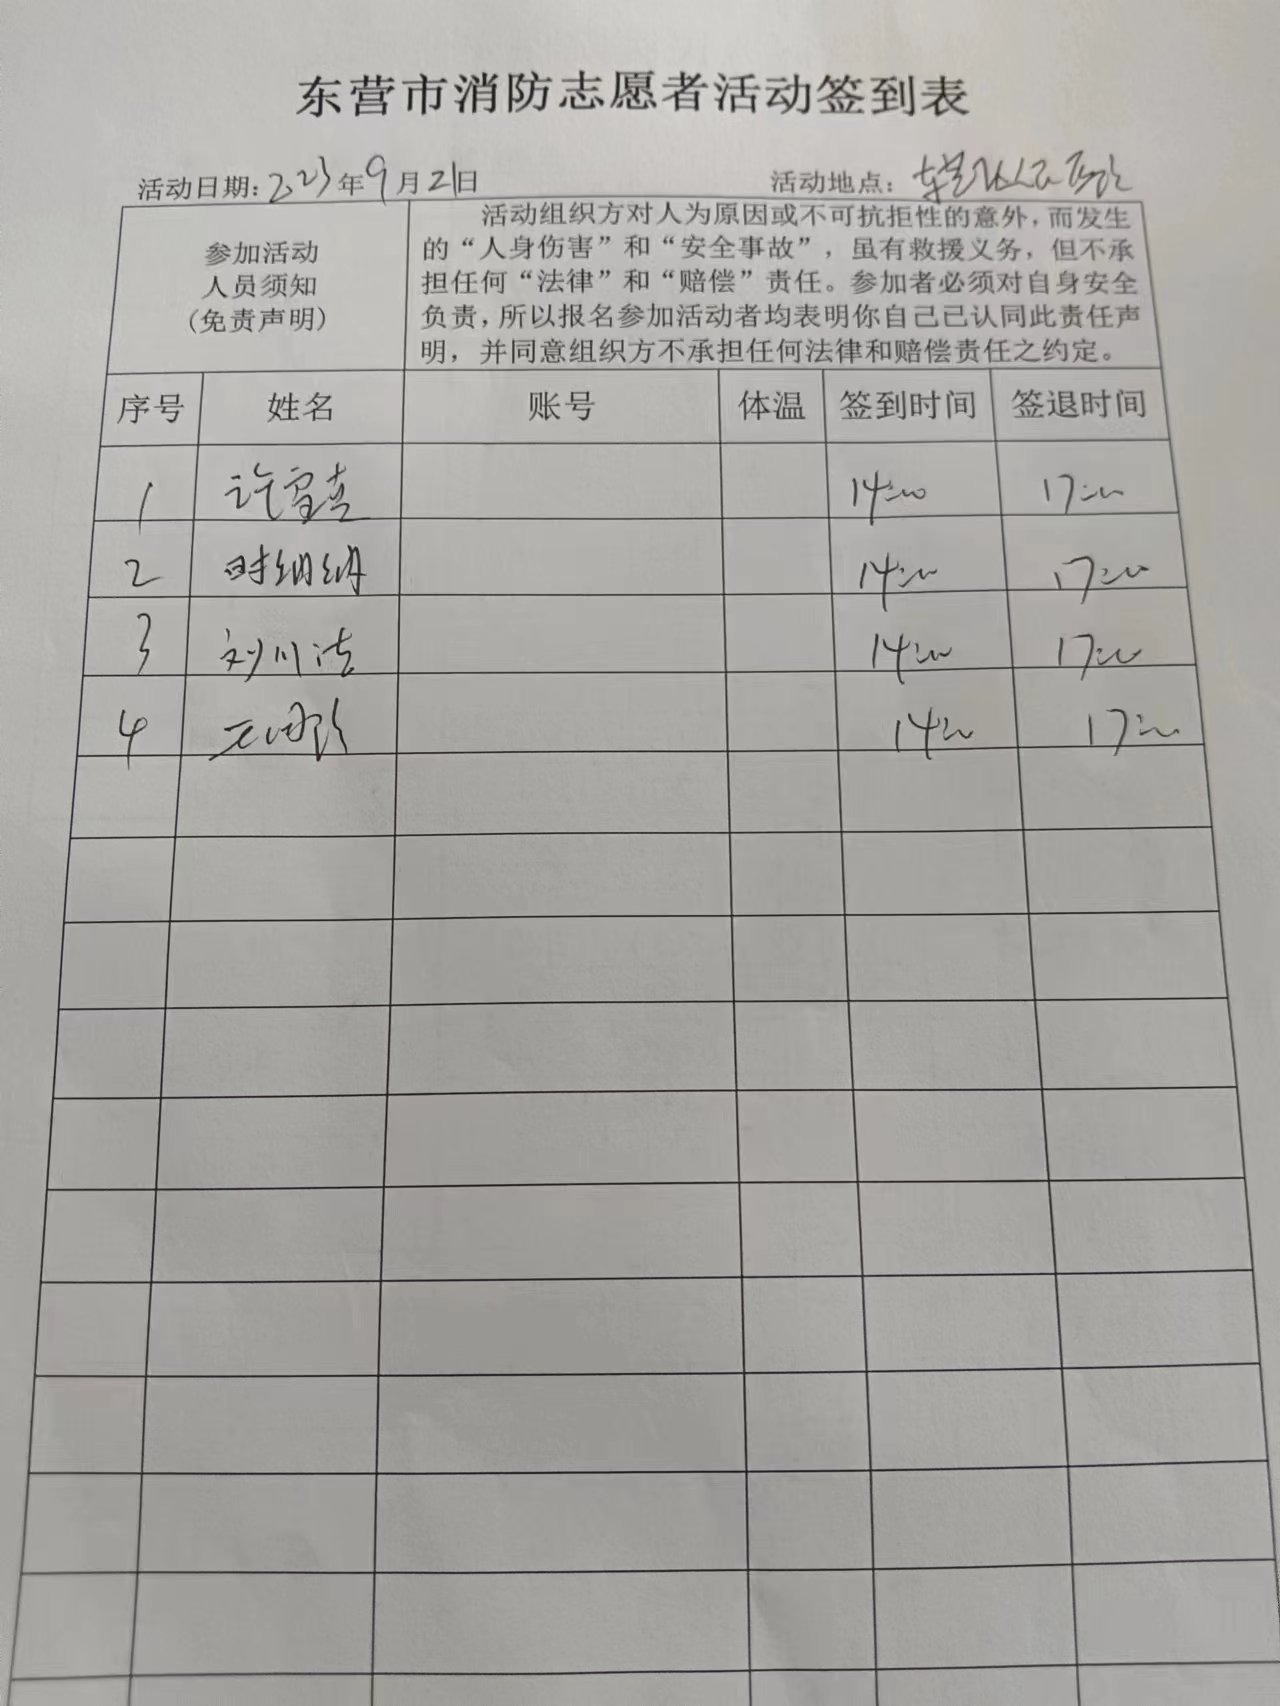 东营市消防志愿者活动签到表
活动日期：2023年9月21日 活动地点：东营区人民医院
参加活动
人员须知
（免责声明）
活动组织方对人为原因或不可抗拒性的意外，而发生
的“人身伤害”和“安全事故”，虽有救援义务，但不承
担任何“法律”和“赔偿”责任。参加者必须对自身安全
负责，所以报名参加活动者均表明你自己已认同此责任声
明，并同意组织方不承担任何法律和赔偿责任之约定。
序号 姓名 账号 体温 签到时间 签退时间
1 14:00 17:00
2 时纳纳 14:00 17:00
3 刘川洁 14:00 17:00
4 14:00 17:00